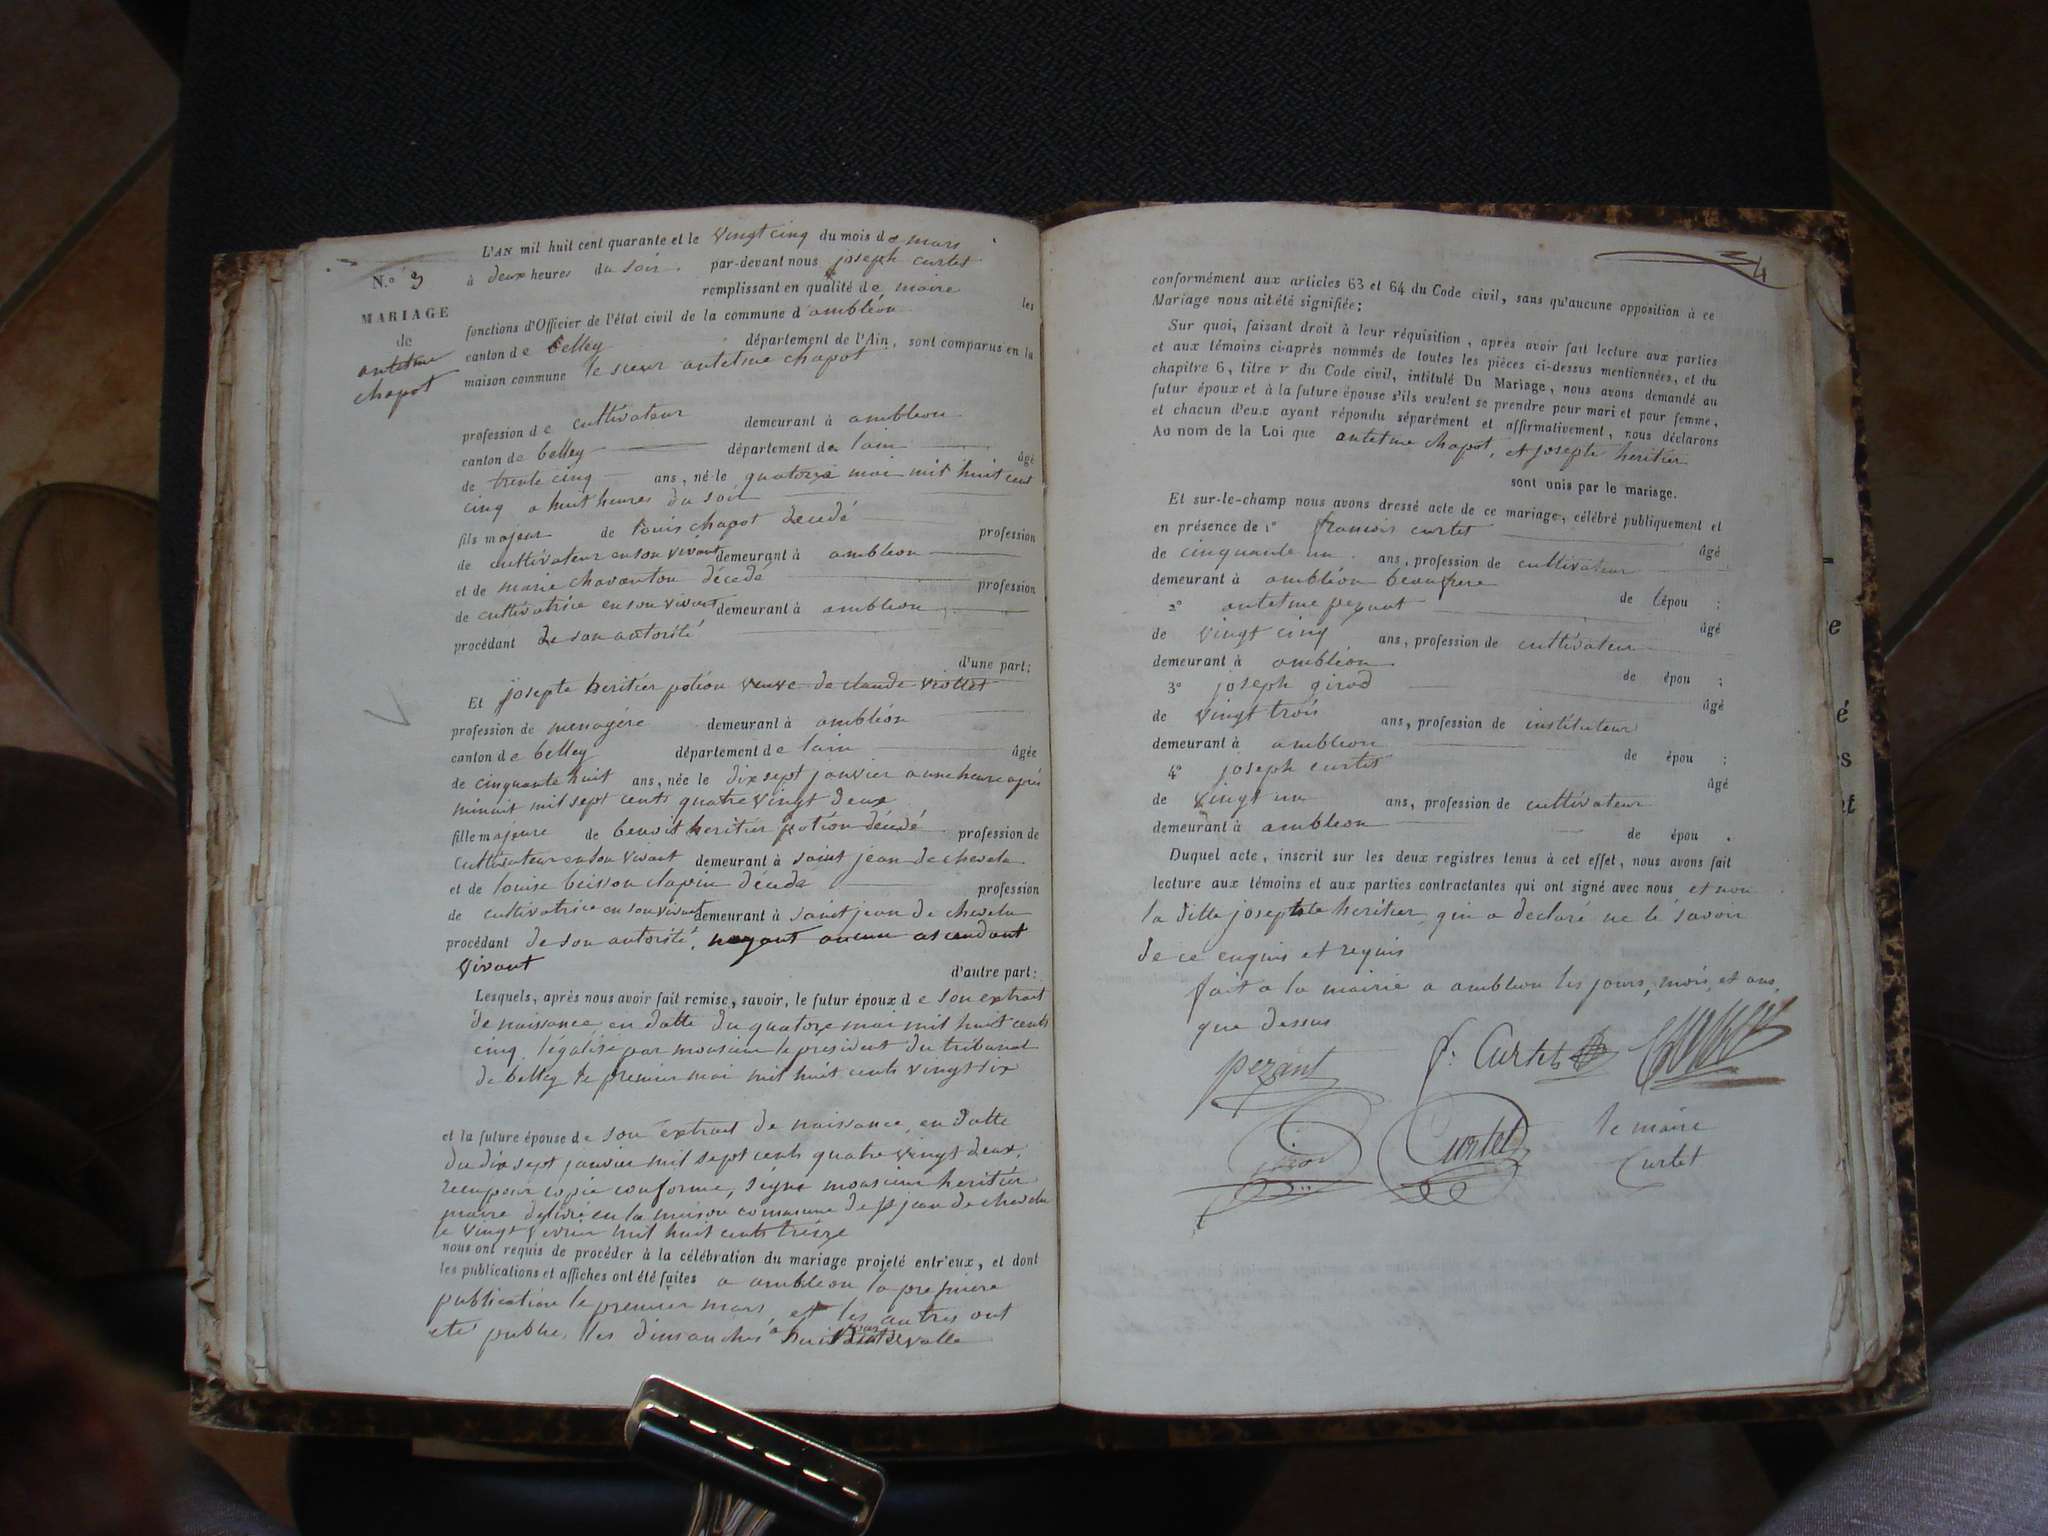 N.o 3
MARIAGE
de
antelme
chapot
L'AN mil huit cent quarante et le vingt cinq du mois de mars
à deux heures du soir par-devant nous joseph curtet
remplissant en qualité de maire les
fonctions d'Officier de l'état civil de la commune d'ambléon
canton de belley département de l'Ain, sont comparus en la
maison commune le sieur antelme chapot
profession de cultivateur demeurant à ambleon
canton de belley département de lain âgé
de trente cinq ans, né le quatorze mai mil huit cent
cinq a huit heures du soir
fils majeur de louis chapot decedé profession
de cultivateur en son vivant demeurant à ambleon
et de marie chavanton décedé profession
de cultivatrice en son vivant demeurant à ambleon
procédant de son autorité
d'une part;
Et josepte heritier potion veuve de claude viollet
profession de menagére demeurant à ambléon
canton de belley département de lain âgée
de cinquante huit ans, née le dix sept janvier a une heure aprés
minuit mil sept cents quatre vingt deux
fille majeure de benoit heritier potion décédé profession de
cultivateur en son vivant demeurant à saint jean de chevelu
et de louise beisson clapin décéda profession
de cultivatrice en son vivant demeurant à saint jean de chevelu
procédant de son autorité, nayant aucun ascendant
vivant d'autre part:
Lesquels, après nous avoir fait remise, savoir, le futur époux de son extrait
de naissance en datte du quatorze mai mil huit cents
cinq légalisé par monsieur le president du tribunal
de belley le premier mai mil huit cents vingt six
et la future épouse de son extrait de naissance, en datte
du dix sept janvier mil sept cents quatre vingt deux,
recu pour copie conforme, signé monsieur heritier
maire délivré en la maison commune de st jean de chevelu
le vingt fevrier mil huit cents treize
nous ont requis de procéder à la célébration du mariage projeté entr'eux, et dont
les publications et affiches ont été faites a ambleon la premiere
publication le premier mars, et les autres ont
eté publié, les dimanches a huit jours dintervalle
34
conformément aux articles 63 et 64 du Code civil, sans qu'aucune opposition à ce
Mariage nous ait été signifiée;
Sur quoi, faisant droit à leur réquisition, après avoir fait lecture aux parties
et aux témoins ci-après nommés de toutes les pièces ci-dessus mentionnées, et du
chapitre 6, titre v du Code civil, intitulé Du Mariage, nous avons demandé au
futur époux et à la future épouse s'ils veulent se prendre pour mari et pour femme,
et chacun d'eux ayant répondu séparément et affirmativement, nous déclarons
Au nom de la Loi que antelme chapot, et josepte heritier
sont unis par le mariage.
Et sur-le-champ nous avons dressé acte de ce mariage, célébré publiquement et
en présence de 1o francois curtet âgé
de cinquante un ans, profession de cultivateur
demeurant à ambléon beaufrere de lépou ;
2o antelme pezant âgé
de vingt cinq ans, profession de cultivateur
demeurant à ambléon de épou ;
3o joseph girod âgé
de vingt trois ans, profession de instituteur
demeurant à ambleon de épou ;
4o joseph curtet âgé
de vingt un ans, profession de cultivateur
demeurant à ambleon de épou .
Duquel acte, inscrit sur les deux registres tenus à cet effet, nous avons fait
lecture aux témoins et aux parties contractantes qui ont signé avec nous et non
la ditte josephte heritier qui a declaré ne le savoir
de ce enquis et requis
fait a la mairie a ambleon les jours, mois, et ans,
que dessus
pezant f. Curtet
girod Curtet le maire
Curtet